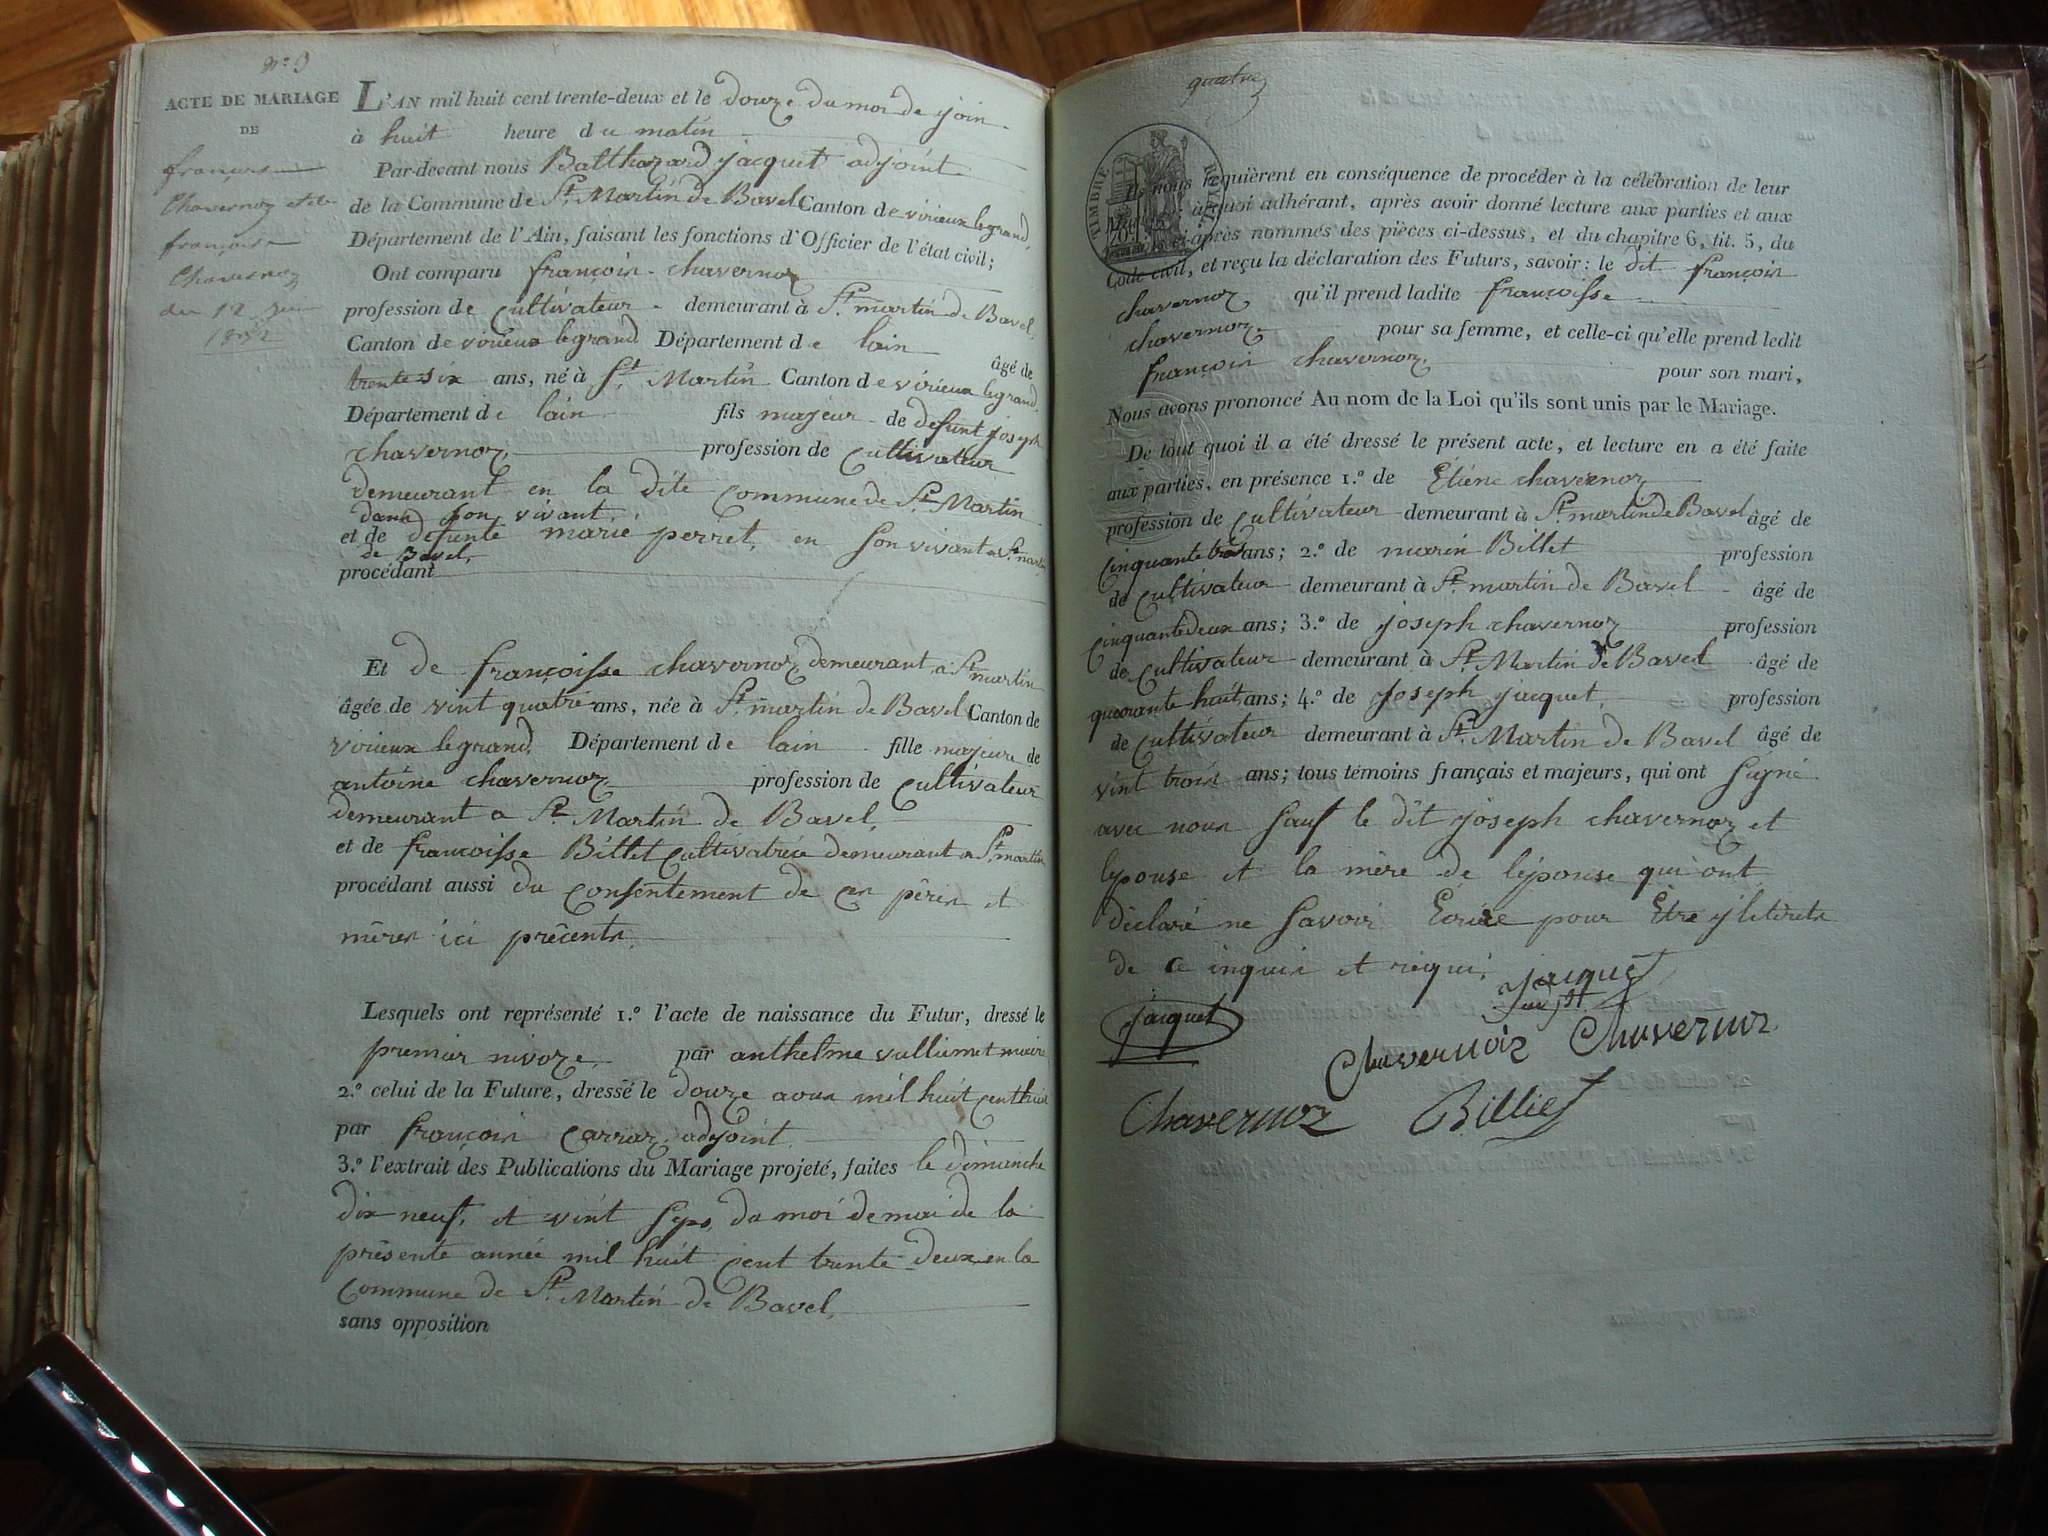 ACTE DE MARIAGE
DE
françois
Chavernoz et de
françoise
Chavernoz
du 12 juin
1832
L'AN mil huit cent trente-deux et le douze du moi de join
à huit heure du matin
Par-devant nous Balthazard jacquet adjoint
de la Commune de St. Martin de Bavel Canton de virieux legrand,
Département de l'Ain, faisant les fonctions d'Officier de l'état civil;
Ont comparu françois chavernoz
profession de cultivateur demeurant à St. martin de Bavel,
Canton de virieux legrand Département de lain âgé de
trente six ans, né à St. Martin Canton de virieux legrand,
Département de lain fils majeur de defunt joseph
chavernoz, profession de cultivateur
demeurant en la dite commune de St. Martin
dans son vivant
et de defunte marie perret, en son vivant a St. martin
de Bavel,
procédant
Et de françoisse chavernoz demeurant a St. martin
âgée de vint quatre ans, née à St. martin de Bavel Canton de
virieux legrand, Département de lain fille majeure de
antoine chavernoz profession de cultivateur
demeurant a St. Martin de Bavel,
et de francoisse Billet cultivatrice demeurant a St. martin
procédant aussi du consentement de ces pères et
mères ici précents,
Lesquels ont représenté 1.º l'acte de naissance du Futur, dressé le
premier nivoze, par anthelme vulliamet maire
2.º celui de la Future, dressé le douze aous mil huit cent huit
par françois carraz, adjoint
3.º l'extrait des Publications du Mariage projeté, faites le dimanche
dix neuf, et vint sept, du moi de mai de la
présente année mil huit cent trente deux en la
commune de St. Martin de Bavel,
sans opposition
quatre
TIMBRE ROYAL
Ils nous requièrent en conséquence de procéder à la célébration de leur
Mariage; à quoi adhérant, après avoir donné lecture aux parties et aux
témoins ci-après nommés des pièces ci-dessus, et du chapitre 6, tit. 5, du
Code civil, et reçu la déclaration des Futurs, savoir: le dit françois
chavernoz qu'il prend ladite françoisse
chavernoz pour sa femme, et celle-ci qu'elle prend ledit
françois chavernoz, pour son mari,
Nous avons prononcé Au nom de la Loi qu'ils sont unis par le Mariage.
De tout quoi il a été dressé le présent acte, et lecture en a été faite
aux parties, en présence 1.º de Étiéne chavernoz
profession de cultivateur demeurant à St. martin de Bavel âgé de
cinquante trois ans; 2.º de marin Billet profession
de cultivateur demeurant à St. martin de Bavel âgé de
cinquante deux ans; 3.º de joseph chavernoz profession
de cultivateur demeurant à St. Martin de Bavel âgé de
quarante huit ans; 4.º de joseph jacquet, profession
de cultivateur demeurant à St. Martin de Bavel âgé de
vint trois ans; tous témoins français et majeurs, qui ont signé
avec nous sauf le dit joseph chavernoz et
lepouse et la mère de lépouse qui ont
déclaré ne savoir Écrire pour Être yliterets
de ce inquis et réqui,
jacquet
jacquet
Chavernoiz Chavernoz
Chavernoz Billiet